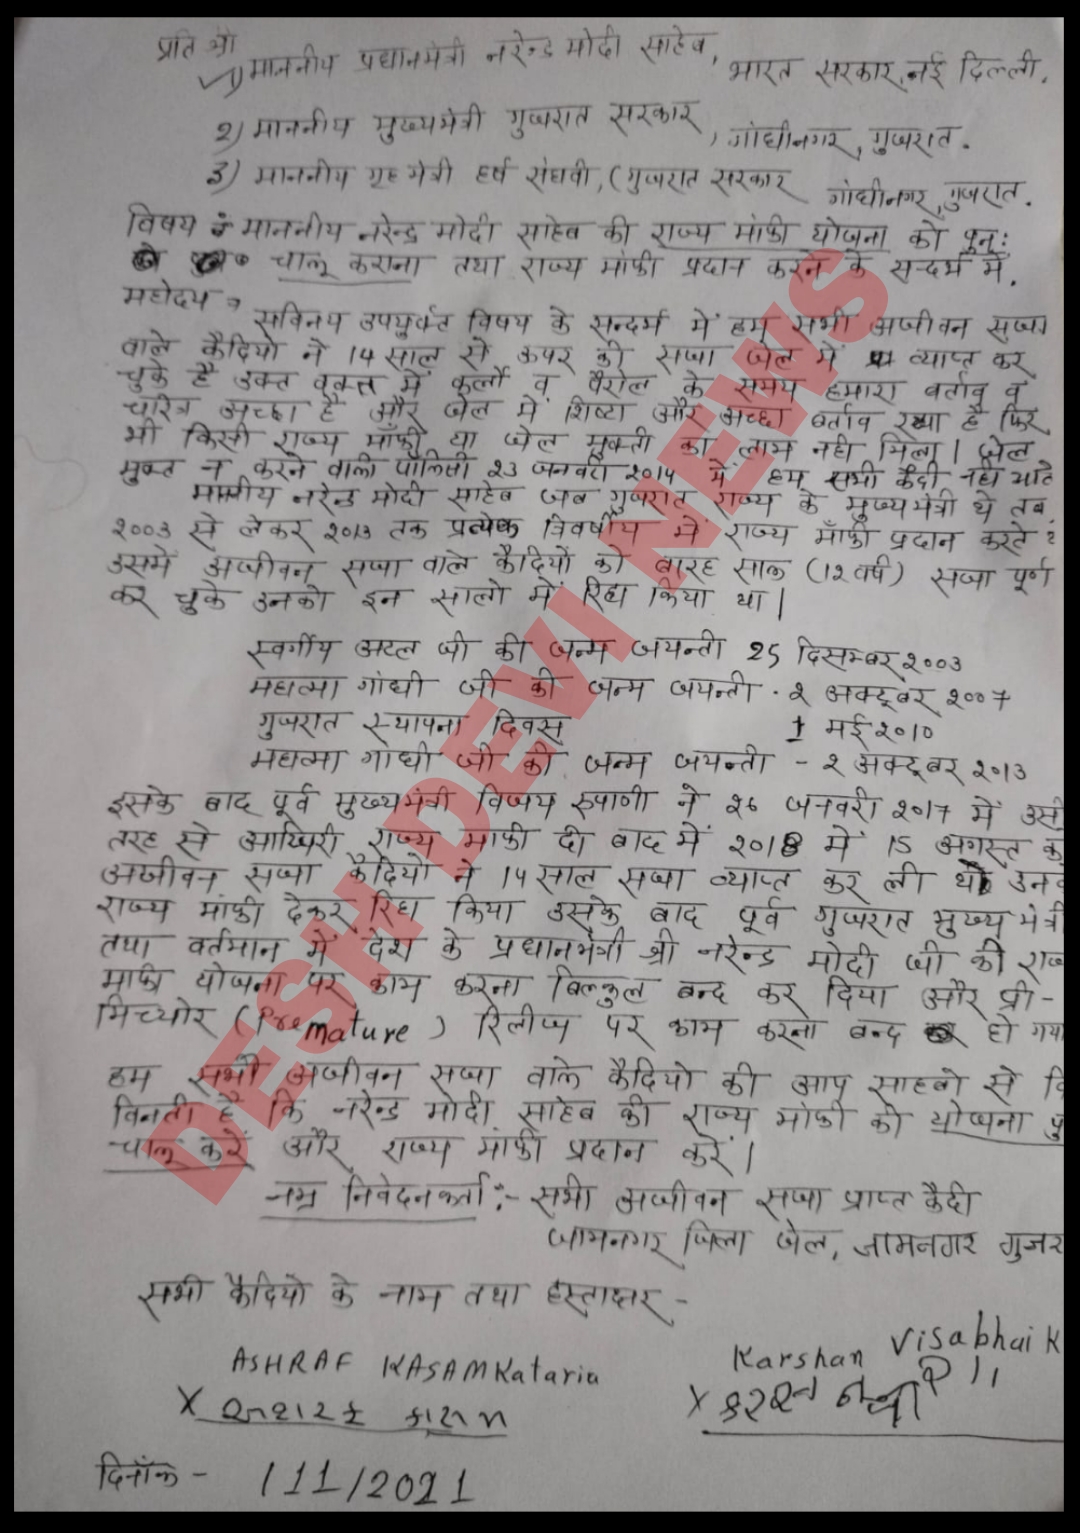 प्रति श्री
1) माननीय प्रधानमंत्री नरेन्द्र मोदी साहेब, भारत सरकार, नई दिल्ली.
2) माननीय मुख्यमंत्री गुजरात सरकार, गांधीनगर, गुजरात.
3) माननीय गृहमंत्री हर्ष संघवी, (गुजरात सरकार गांधीनगर, गुजरात.
विषय :- माननीय नरेन्द्र मोदी साहेब की राज्य मांफी योजना को पुन:
चालू कराना तथा राज्य मांफी प्रदान करने के सन्दर्भ में.
महोदय,
सविनय उपर्युक्त विषय के सन्दर्भ में हम सभी अजीवन सजा
वाले कैदियो ने 14 साल से ऊपर की सजा जेल में व्याप्त कर
चुके है उक्त वक्त में फर्लो व पैरोल के समय हमारा बर्ताव व
चरित्र अच्छा है और जेल में शिष्टा और अच्छा बर्ताव रखा है फिर
भी किसी राज्य माँफी या जेल मुक्ती का लाभ नही मिला। जेल
मुक्त न करने वाली पॉलिसी 23 जनवरी 2014 में हम सभी कैदी नही आते
माननीय नरेन्द्र मोदी साहेब जब गुजरात राज्य के मुख्यमंत्री थे तब
2003 से लेकर 2013 तक प्रत्येक त्रिवर्षीय में राज्य माँफी प्रदान करते
उसमे अजीवन सजा वाले कैदियों को बारह साल (12 वर्ष) सजा पूर्ण
कर चुके उनको इन सालो में रिहा किया था।
स्वर्गीय अटल जी की जन्म जयन्ती 25 दिसम्बर 2003
महात्मा गांधी जी की जन्म जयन्ती - 2 अक्टूबर 2007
गुजरात स्थापना दिवस 1 मई 2010
महात्मा गांधी जी की जन्म जयन्ती - 2 अक्टूबर 2013
इसके बाद पूर्व मुख्यमंत्री विजय रुपाणी ने 26 जनवरी 2017 में उसी
तरह से आखिरी राज्य माफी दी बाद में 2018 में 15 अगस्त को
अजीवन सजा कैदियो ने 14 साल सजा व्याप्त कर ली थी
राज्य मांफी देकर रिहा किया उसके बाद पूर्व गुजरात मुख्य मंत्री
तथा वर्तमान में देश के प्रधानमंत्री श्री नरेन्द्र मोदी जी की
माफी योजना पर काम करना बिल्कुल बन्द कर दिया और प्री-
मिच्योर (Premature) रिलीज पर काम करना बन्द हो गया
हम सभी अजीवन सजा वाले कैदियो की आप साहबो से
विनती है कि नरेन्द्र मोदी साहेब की राज्य मांफी की योजना
चालू करें और राज्य मांफी प्रदान करें।
नम्र निवेदनकर्ता :- सभी अजीवन सजा प्राप्त कैदी
जामनगर जिला जेल, जामनगर
सभी कैदियो के नाम तथा हस्ताक्षर -
ASHRAF KASAM Kataria
Karshan Visabhai K
X અશરફ કાસમ
X કરશન
दिनाँक - /11/2021
DESH DEVI NEWS